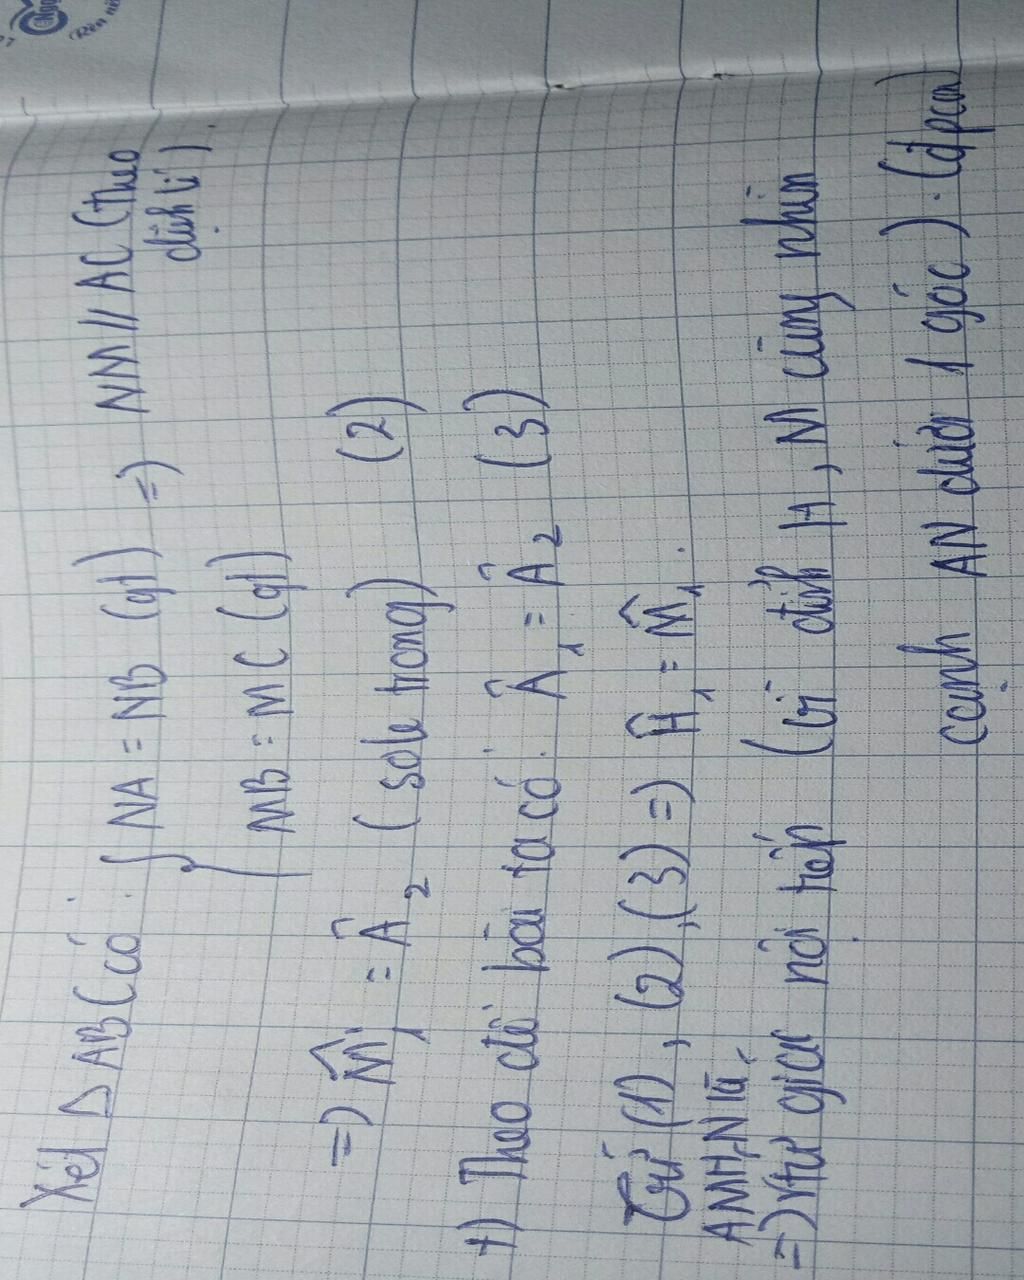 Xét △ ABC có: { NA = NB (gt) => NM // AC (theo
định lí).
MB = MC (gt)
=> M̂₁ = Â₂ (sole trong) (2)
+) Theo đề bài ta có: Â₁ = Â₂ (3)
Từ (1), (2), (3) => Ĥ₁ = M̂₁.
AMHN là
=> tứ giác nội tiếp (vì đỉnh H, M cùng nhìn
cạnh AN dưới 1 góc). (đpcm)